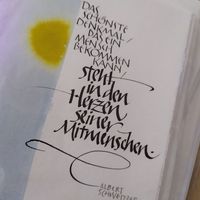 DAS
SCHÖNSTE
DENKMAL,
DAS EIN
MENSCH
BEKOMMEN
KANN,
steht
in den
Herzen
seiner
Mitmenschen.
ALBERT
SCHWEITZER